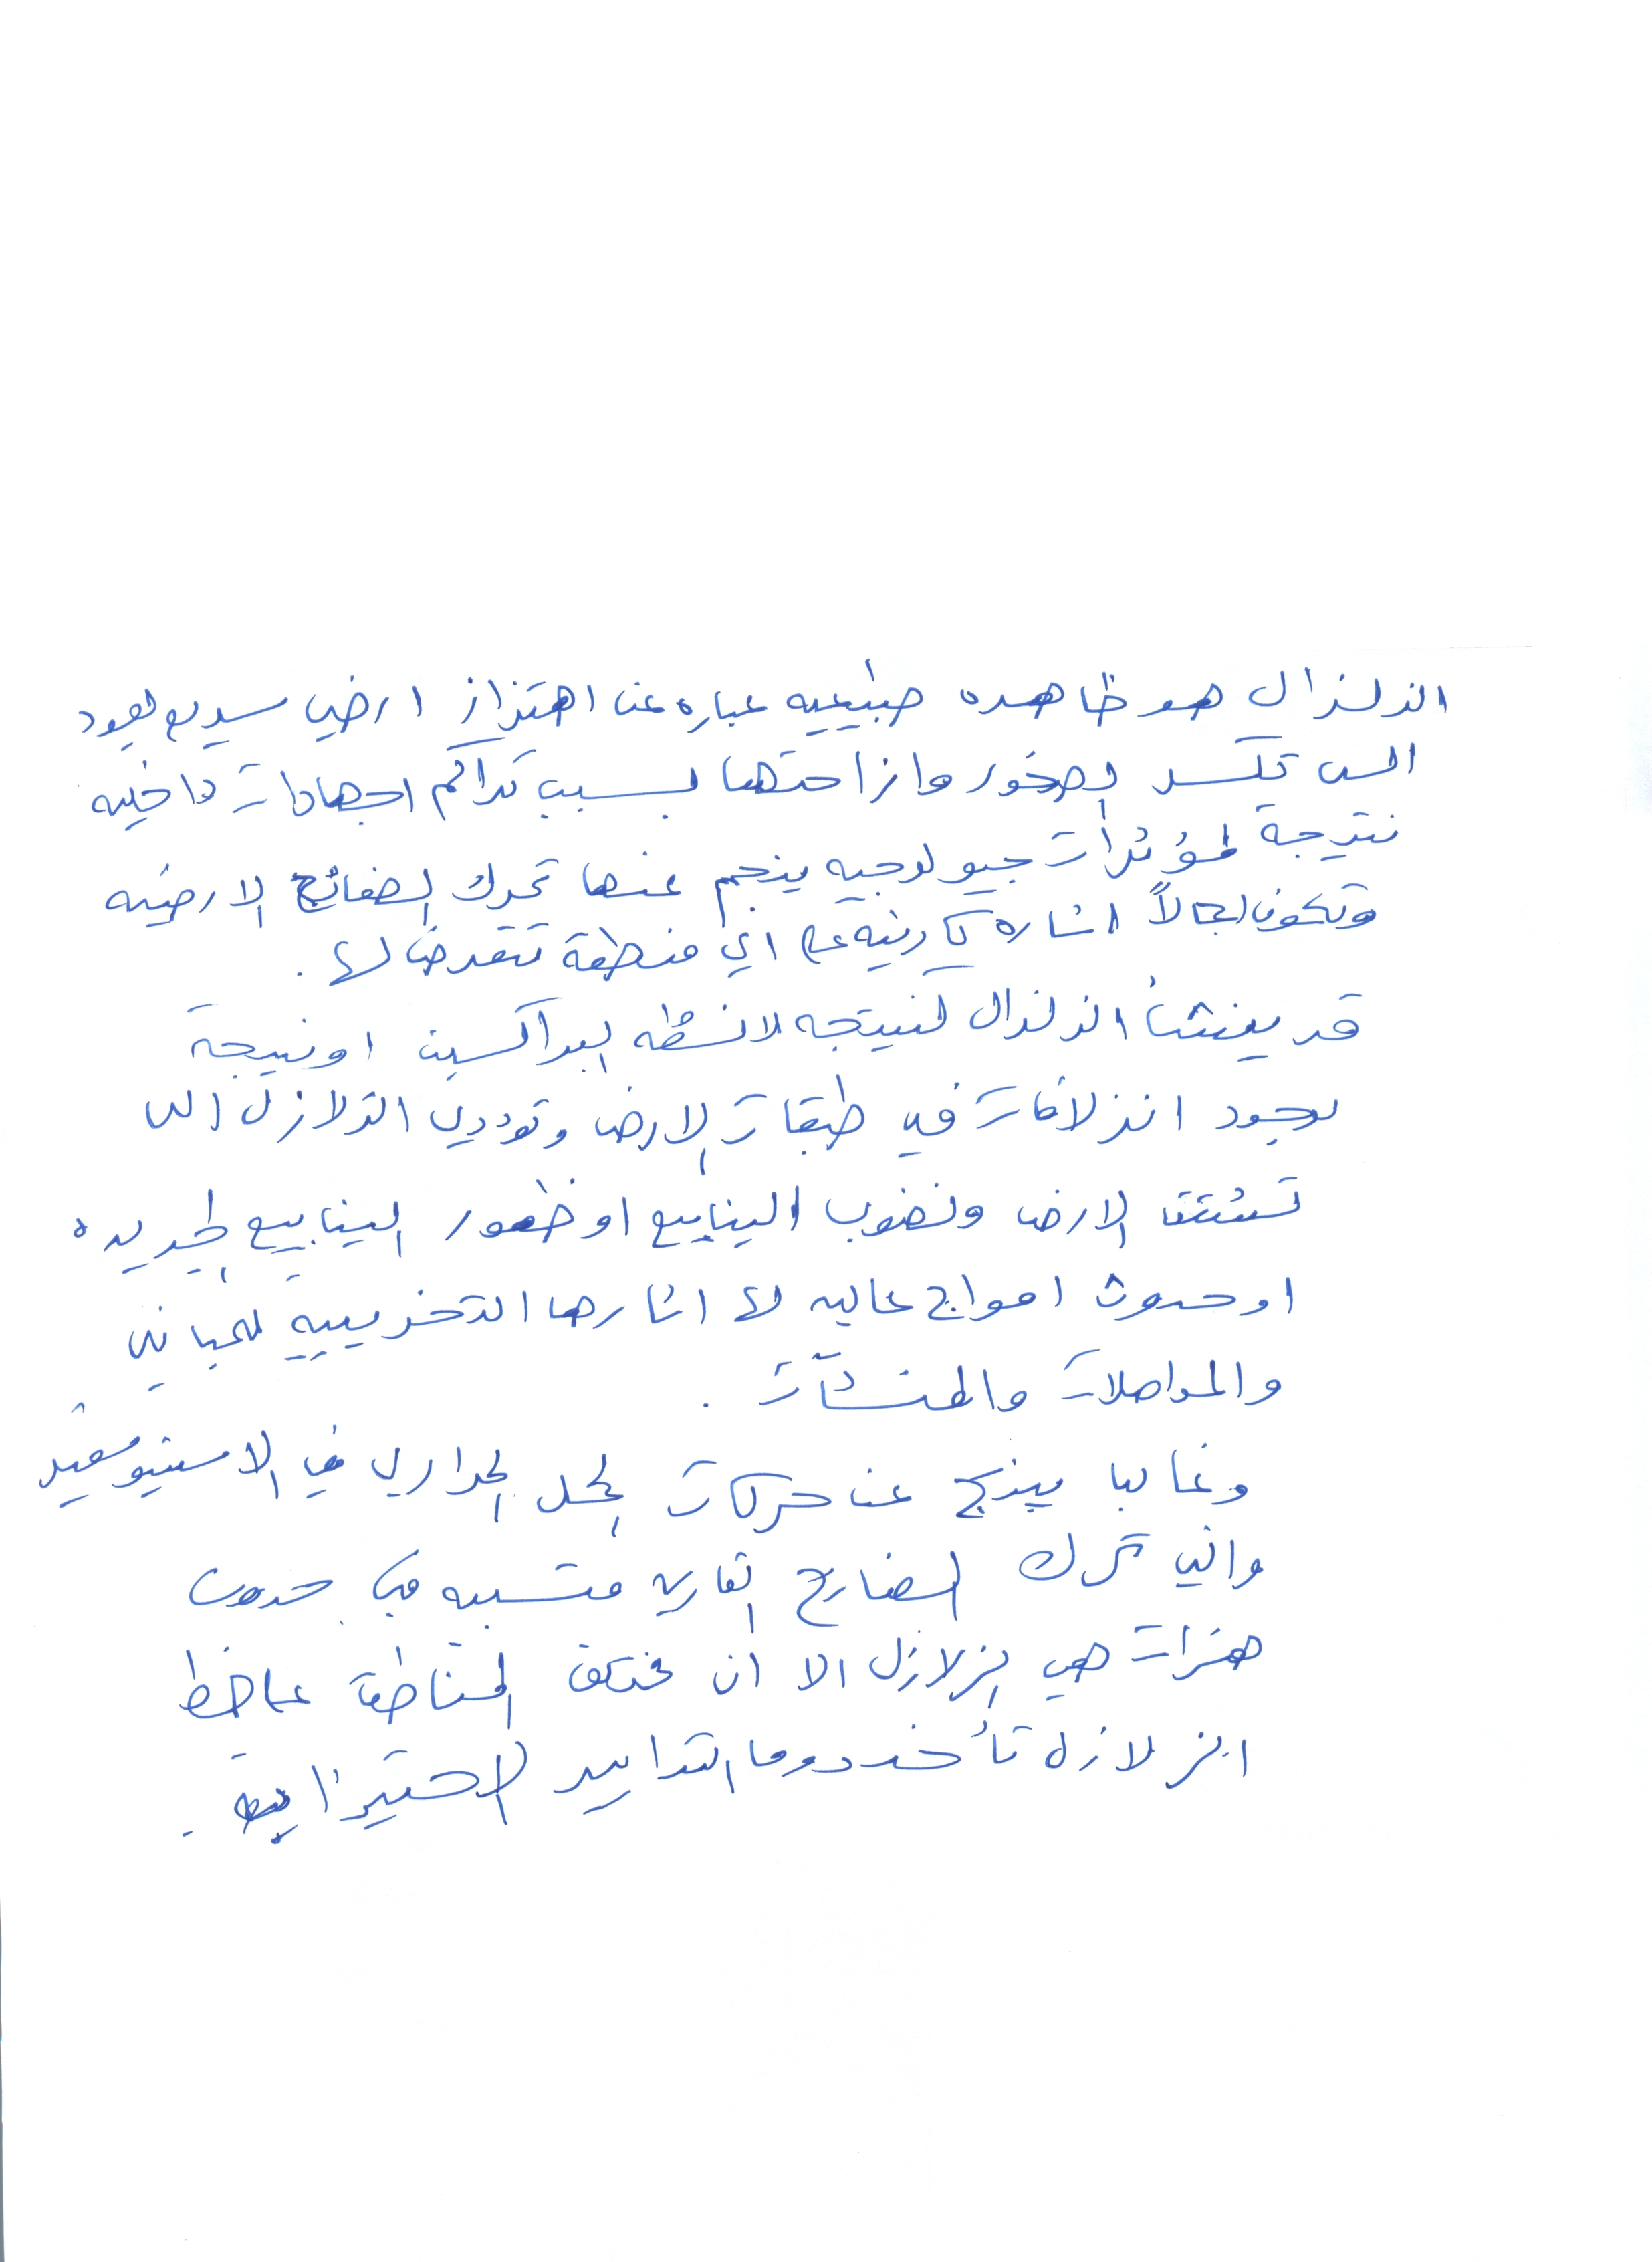 الزلزال هو ظاهره طبيعيه عباره عن اهتزاز ارضي سريع يعود
الى تكسر الصخور وازاحتها بسبب تراكم اجهادات داخليه
نتيجة لمؤثرات جيولوجيه ينجم عنها تحرك الصفائح الارضيه
وتكون اجمالاً اثاره كارثيه على اي منطقة تتعرض لها .
قد ينشأ الزلزال كنتيجه لانشطه البراكين او نتيجة
لوجود انزلاقات في طبقات الارض وتودي الزلازل الى
تشقق الارض ونضوب الينابيع او ظهور الينابيع الجديده
او حدوث امواج عاليه لها اثارها التخريبية للمباني
والمواصلات والمنشآت .
وغالبا ينتج عن حركات الحمل الحراري في الاستينوسفير
والتي تحرك الصفائح القاريه متسببه في حدوث
هزات هي الزلازل الا ان المناطق على خط
الزلازل تأخذ دوما التدابير الاحتيرازية .